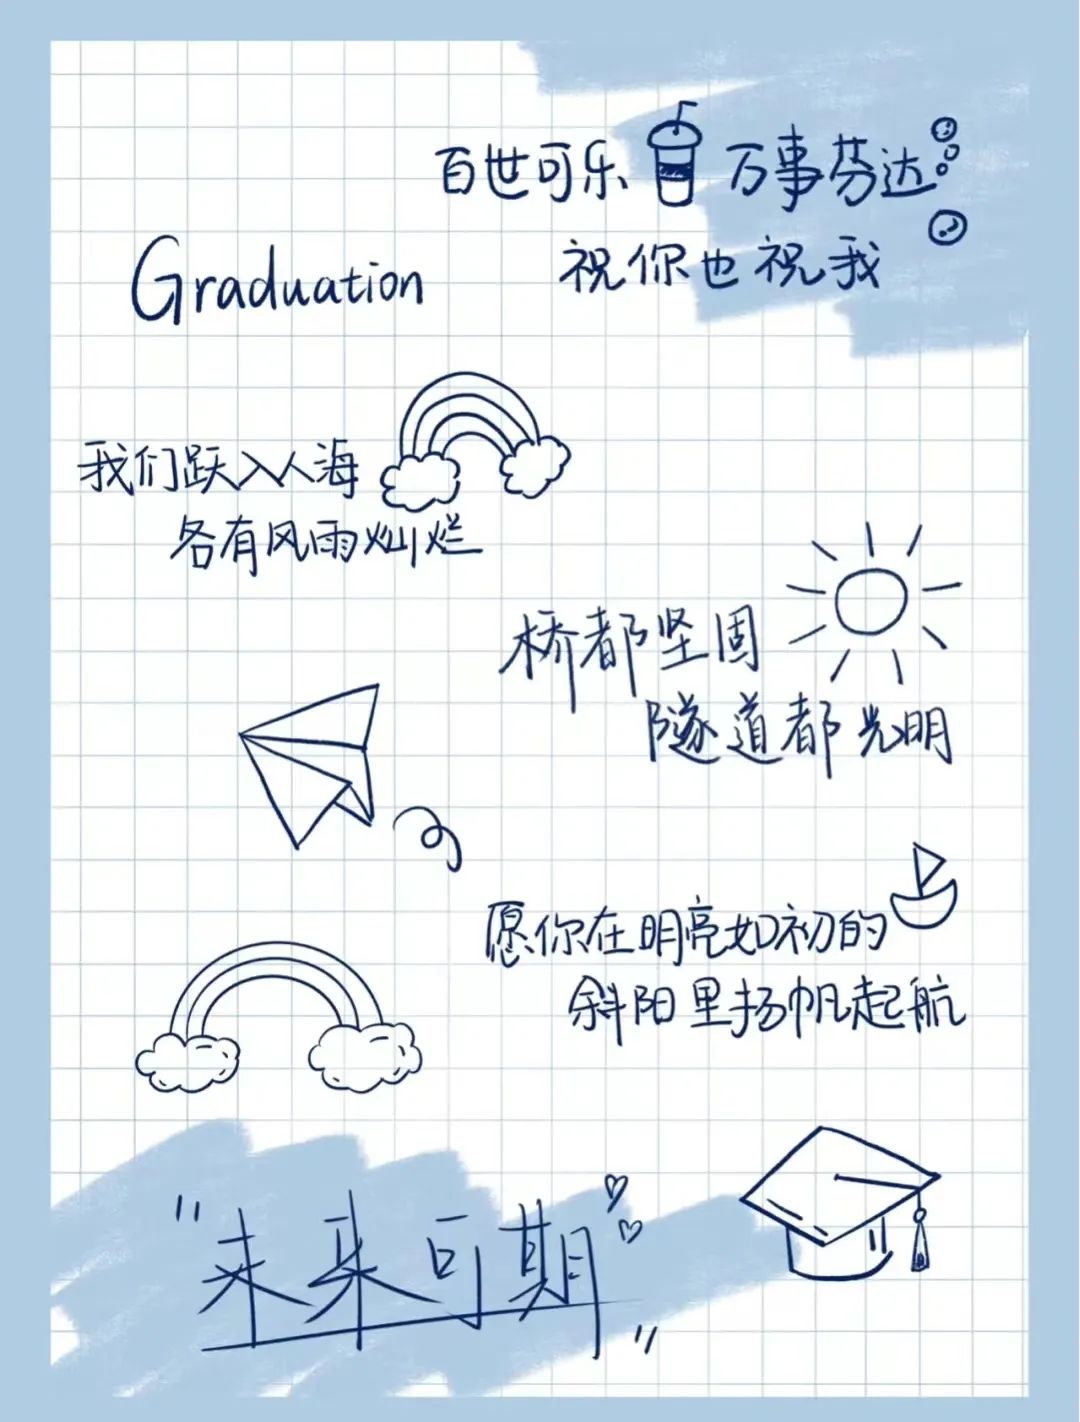 百世可乐 万事芬达
祝你也祝我
Graduation
我们跃入人海
各有风雨灿烂
桥都坚固
隧道都光明
愿你在明亮如初的
斜阳里扬帆起航
"未来可期"